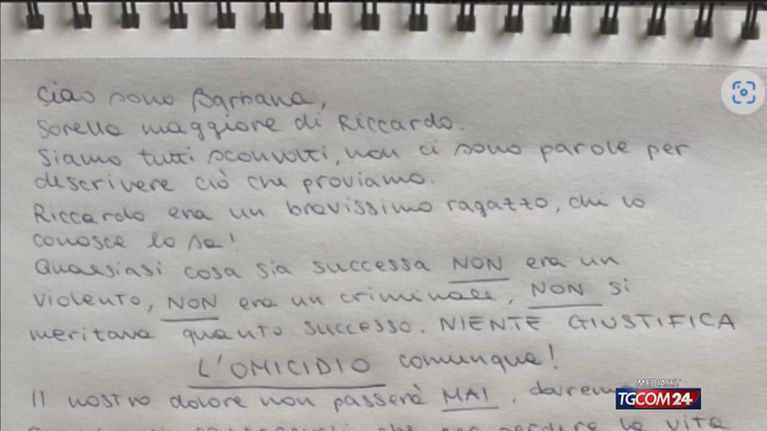 Ciao sono Barbara,
Sorella maggiore di Riccardo.
Siamo tutti sconvolti, non ci sono parole per
descrivere ciò che proviamo.
Riccardo era un bravissimo ragazzo, chi lo
conosce lo sa!
Qualsiasi cosa sia successa NON era un
violento, NON era un criminale, NON si
meritava quanto successo. NIENTE GIUSTIFICA
L'OMICIDIO comunque!
Il nostro dolore non passerà MAI,
MEDIASET
TGCOM24
che per perdere la vita